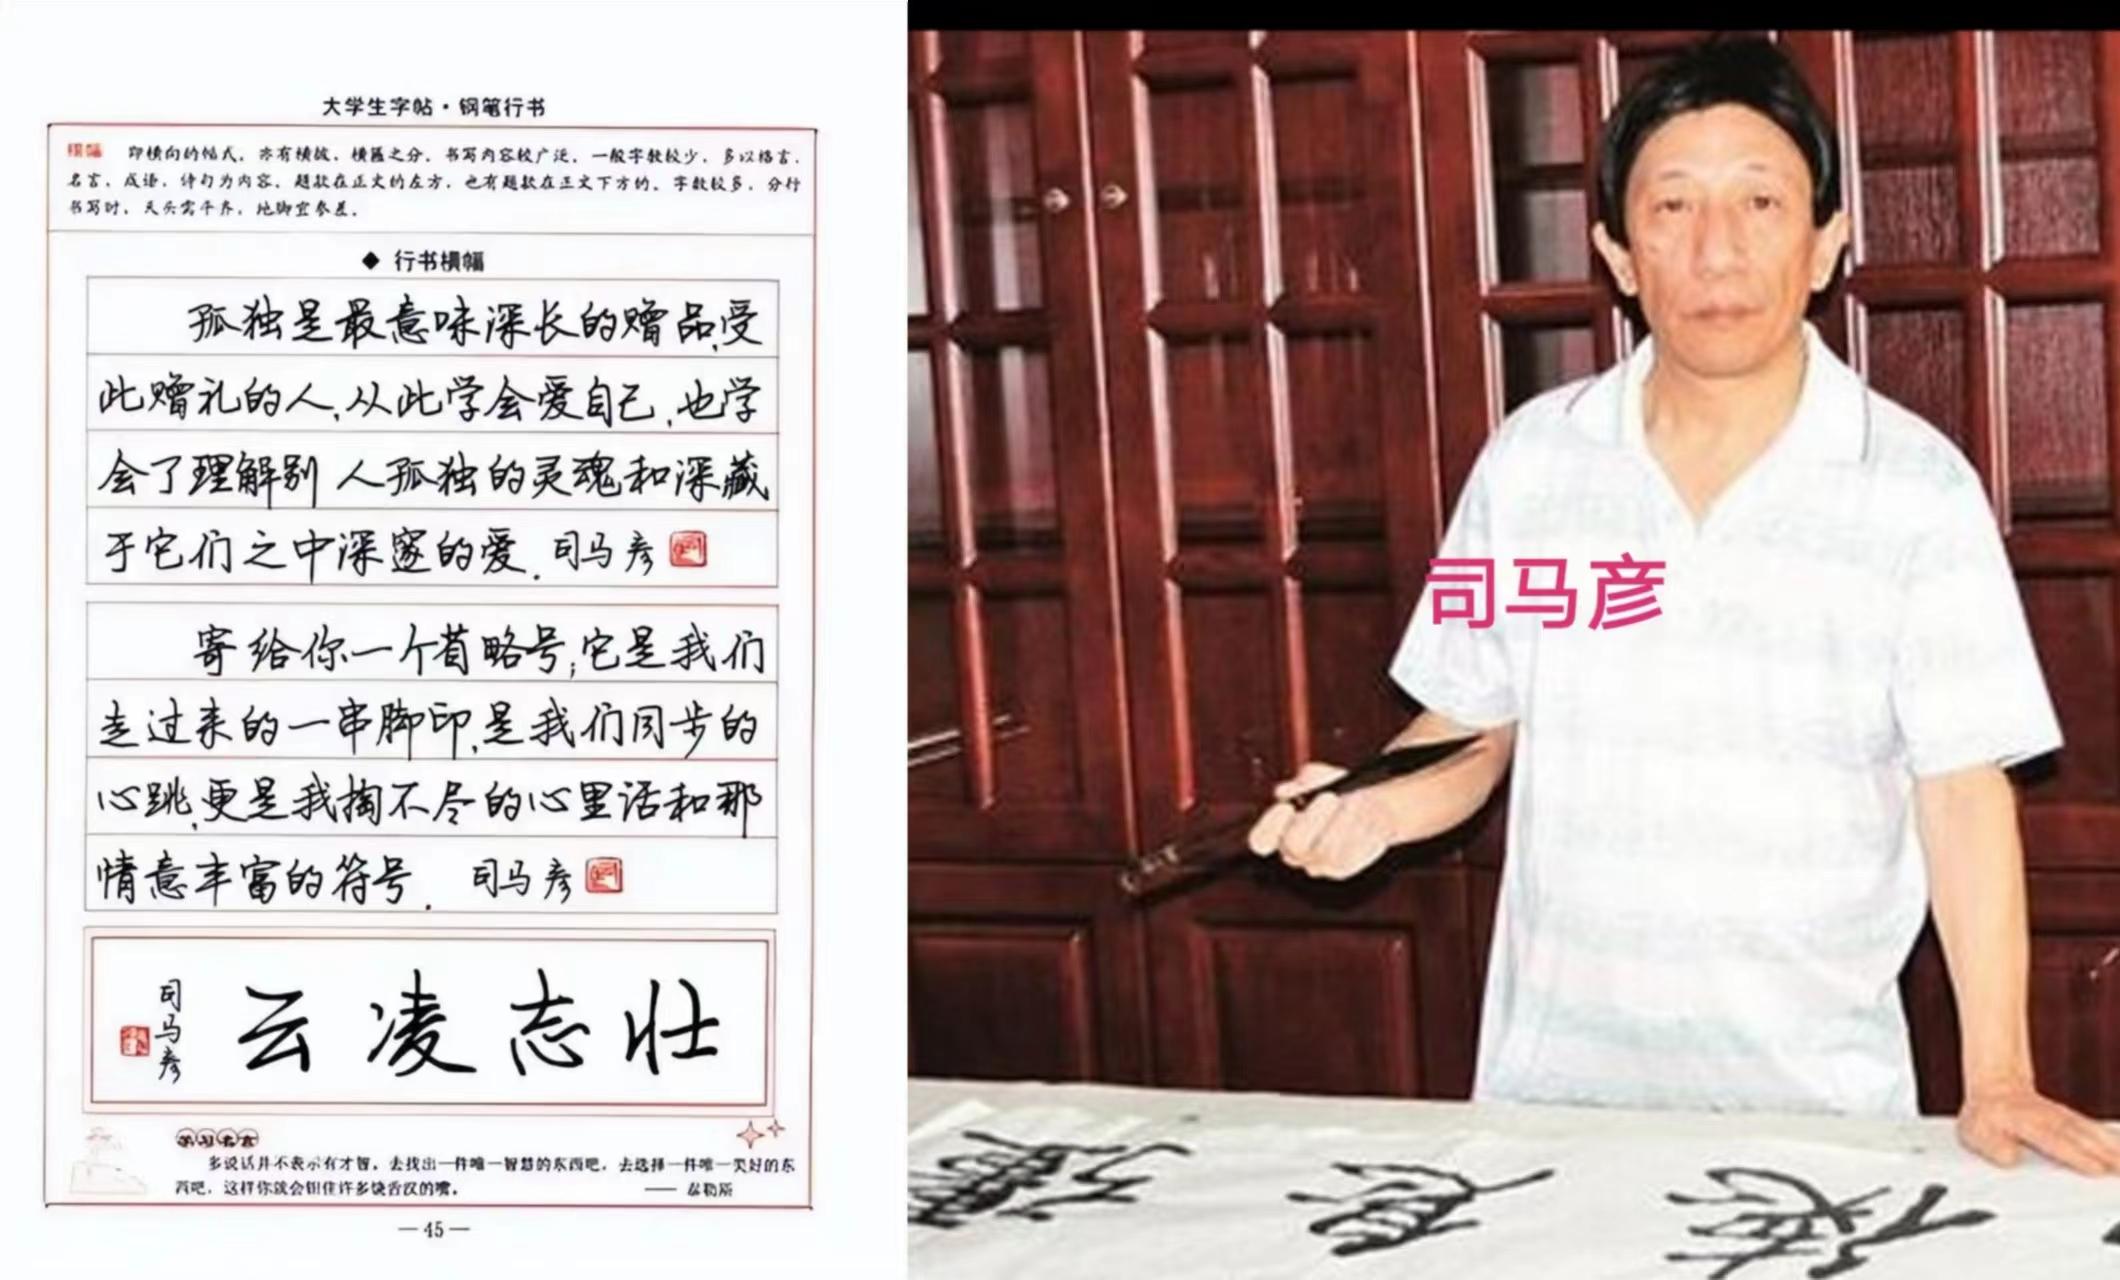 大学生字帖·钢笔行书
横幅 即横向的帖式，亦有横披、横匾之分，书写内容较广泛，一般字数较少，多以格言、
名言、成语、诗句为内容，题款在正文的左方，也有题款在正文下方的。字数较多，分行
书写时，天头需平齐，地脚宜参差。
◆ 行书横幅
孤独是最意味深长的赠品，受
此赠礼的人，从此学会爱自己，也学
会了理解别人孤独的灵魂和深藏
于它们之中深邃的爱。司马彦
寄给你一个省略号；它是我们
走过来的一串脚印，是我们同步的
心跳，更是我掏不尽的心里话和那
情意丰富的符号。 司马彦
云凌志壮
司马彦
学习名言
多说话并不表示有才智，去找出一件唯一智慧的东西吧，去选择一件唯一美好的东
西吧，这样你就会钳住许多饶舌汉的嘴。
—— 泰勒斯
—45—
司马彦